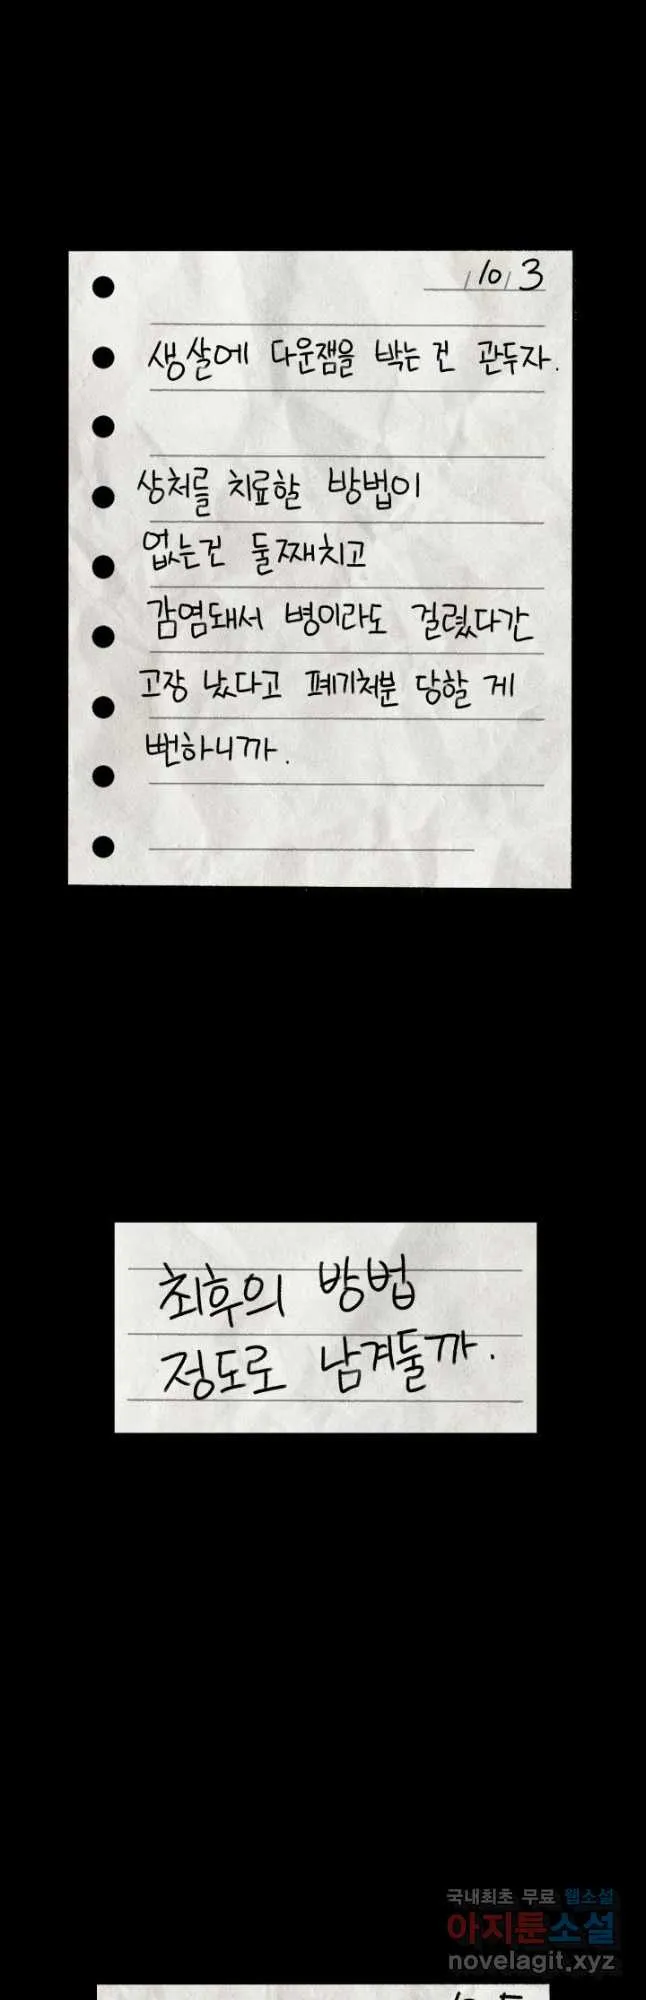 /10/3
생살에 다운잼을 박는 건 관두자.
상처를 치료할 방법이
없는건 둘째치고
감염돼서 병이라도 걸렸다간
고장 났다고 폐기처분 당할 게
뻔하니까.
최후의 방법
정도로 남겨둘까.
국내최초 무료 웹소설
아지툰소설
novelagit.xyz